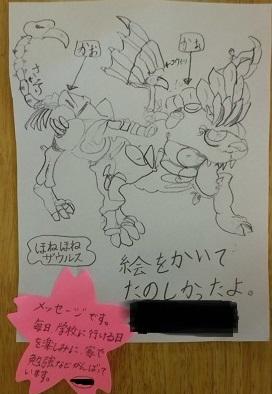 かお
かお
ほねほね
ザウルス
絵をかいて
たのしかったよ。
メッセージです。
毎日 学校に行ける日
を楽しみに、家で
勉強などがんばって
います。